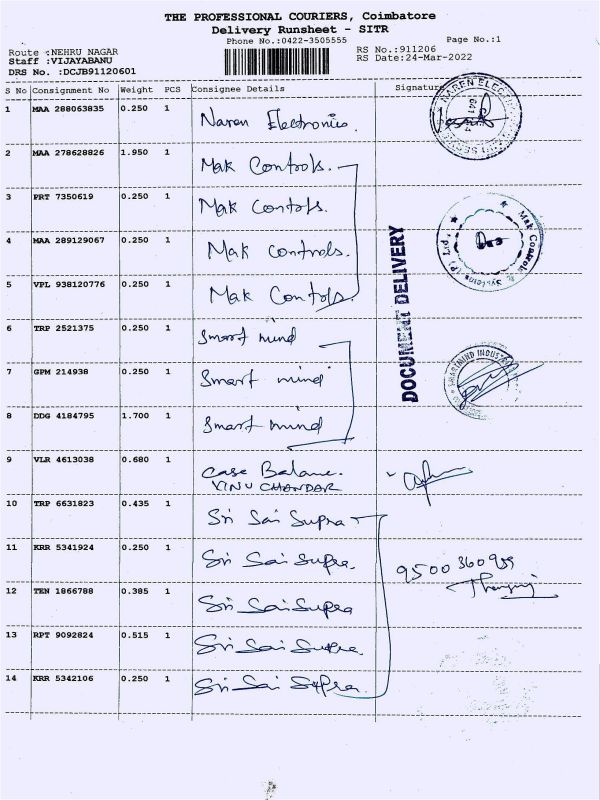 THE PROFESSIONAL COURIERS, Coimbatore
Delivery Runsheet - SITR
Phone No.:0422-3505555
Page No.:1
Route :NEHRU NAGAR
RS No.:911206
Staff :VIJAYABANU
RS Date:24-Mar-2022
DRS No. :DCJB91120601
S No Consignment No Weight PCS Consignee Details Signature
1 MAA 288063835 0.250 1 Naren Electronics.
2 MAA 278628826 1.950 1 Mak Controls.
3 PRT 7350619 0.250 1 Mak Contols.
4 MAA 289129067 0.250 1 Mak Controls.
5 VPL 938120776 0.250 1 Mak Contols.
6 TRP 2521375 0.250 1 Smart mind
7 GPM 214938 0.250 1 Smart mind
8 DDG 4184795 1.700 1 Smart mind
9 VLR 4613038 0.680 1 Case Balance.
VINU CHANDAR
10 TRP 6631823 0.435 1 Sri Sai Supra
11 KRR 5341924 0.250 1 Sri Sai Supra.
12 TEN 1866788 0.385 1 Sri Sai Supra
13 RPT 9092824 0.515 1 Sri Sai Supra.
14 KRR 5342106 0.250 1 Sri Sai Supra.
NAREN ELEC
Mak Controls & Systems (P) Ltd
DOCUMENT DELIVERY
SMARTMIND INDUS
9500360959